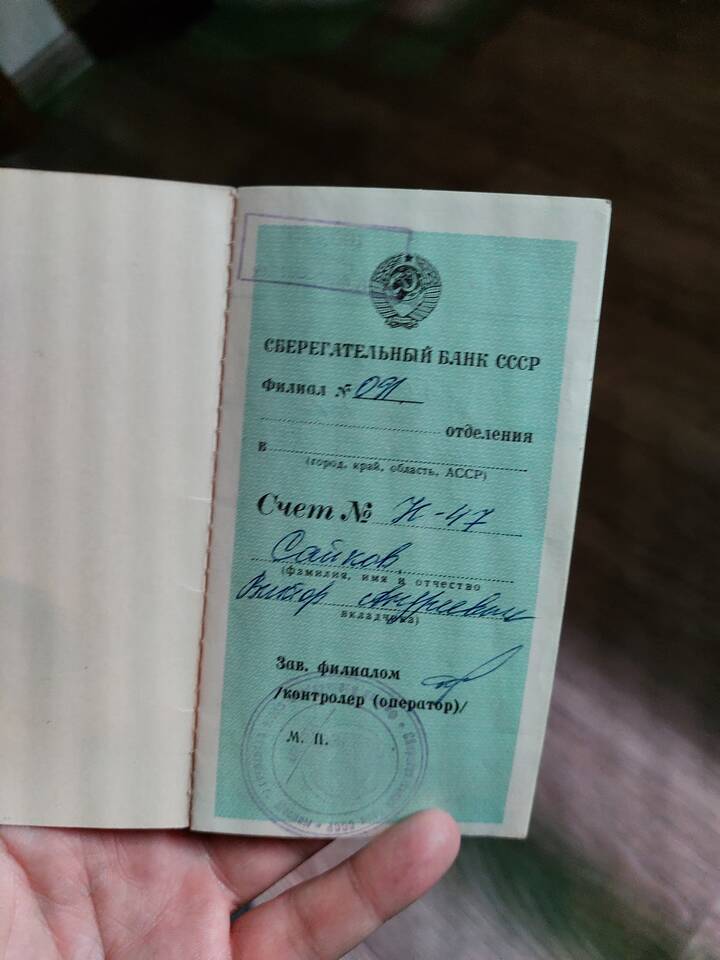 СБЕРЕГАТЕЛЬНЫЙ БАНК СССР
Филиал № 091
отделения
в
(город, край, область, АССР)
Счет № Н-47
Сайков
(фамилия, имя и отчество
Виктор Андреевич
вкладчика)
Зав. филиалом
/контролер (оператор)/
М. П.